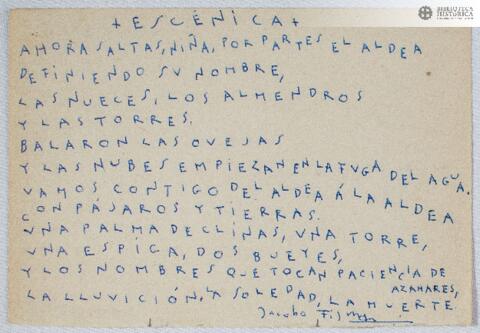 BIBLIOTECA
HISTÓRICA
+ ESCENICA +
AHORA SALTAS, NIÑA, POR PARTES EL ALDEA
DEFINIENDO SU NOMBRE,
LAS NUECES, LOS ALMENDROS
Y LAS TORRES.
BALARON LAS OVEJAS
Y LAS NUBES EMPIEZAN EN LA FUGA DEL AGUA.
VAMOS CONTIGO DEL ALDEA Á LA ALDEA
CON PÁJAROS Y TIERRAS.
UÑA PALMA DE CLINAS, UNA TORRE,
UNA ESPIGA, DOS BUEYES,
Y LOS NOMBRES QUE TOCAN PACIENCIA DE
AZAHARES,
LA LLUVICIÓN, LA SOLEDAD, LA MUERTE.
Jacobo Fijman